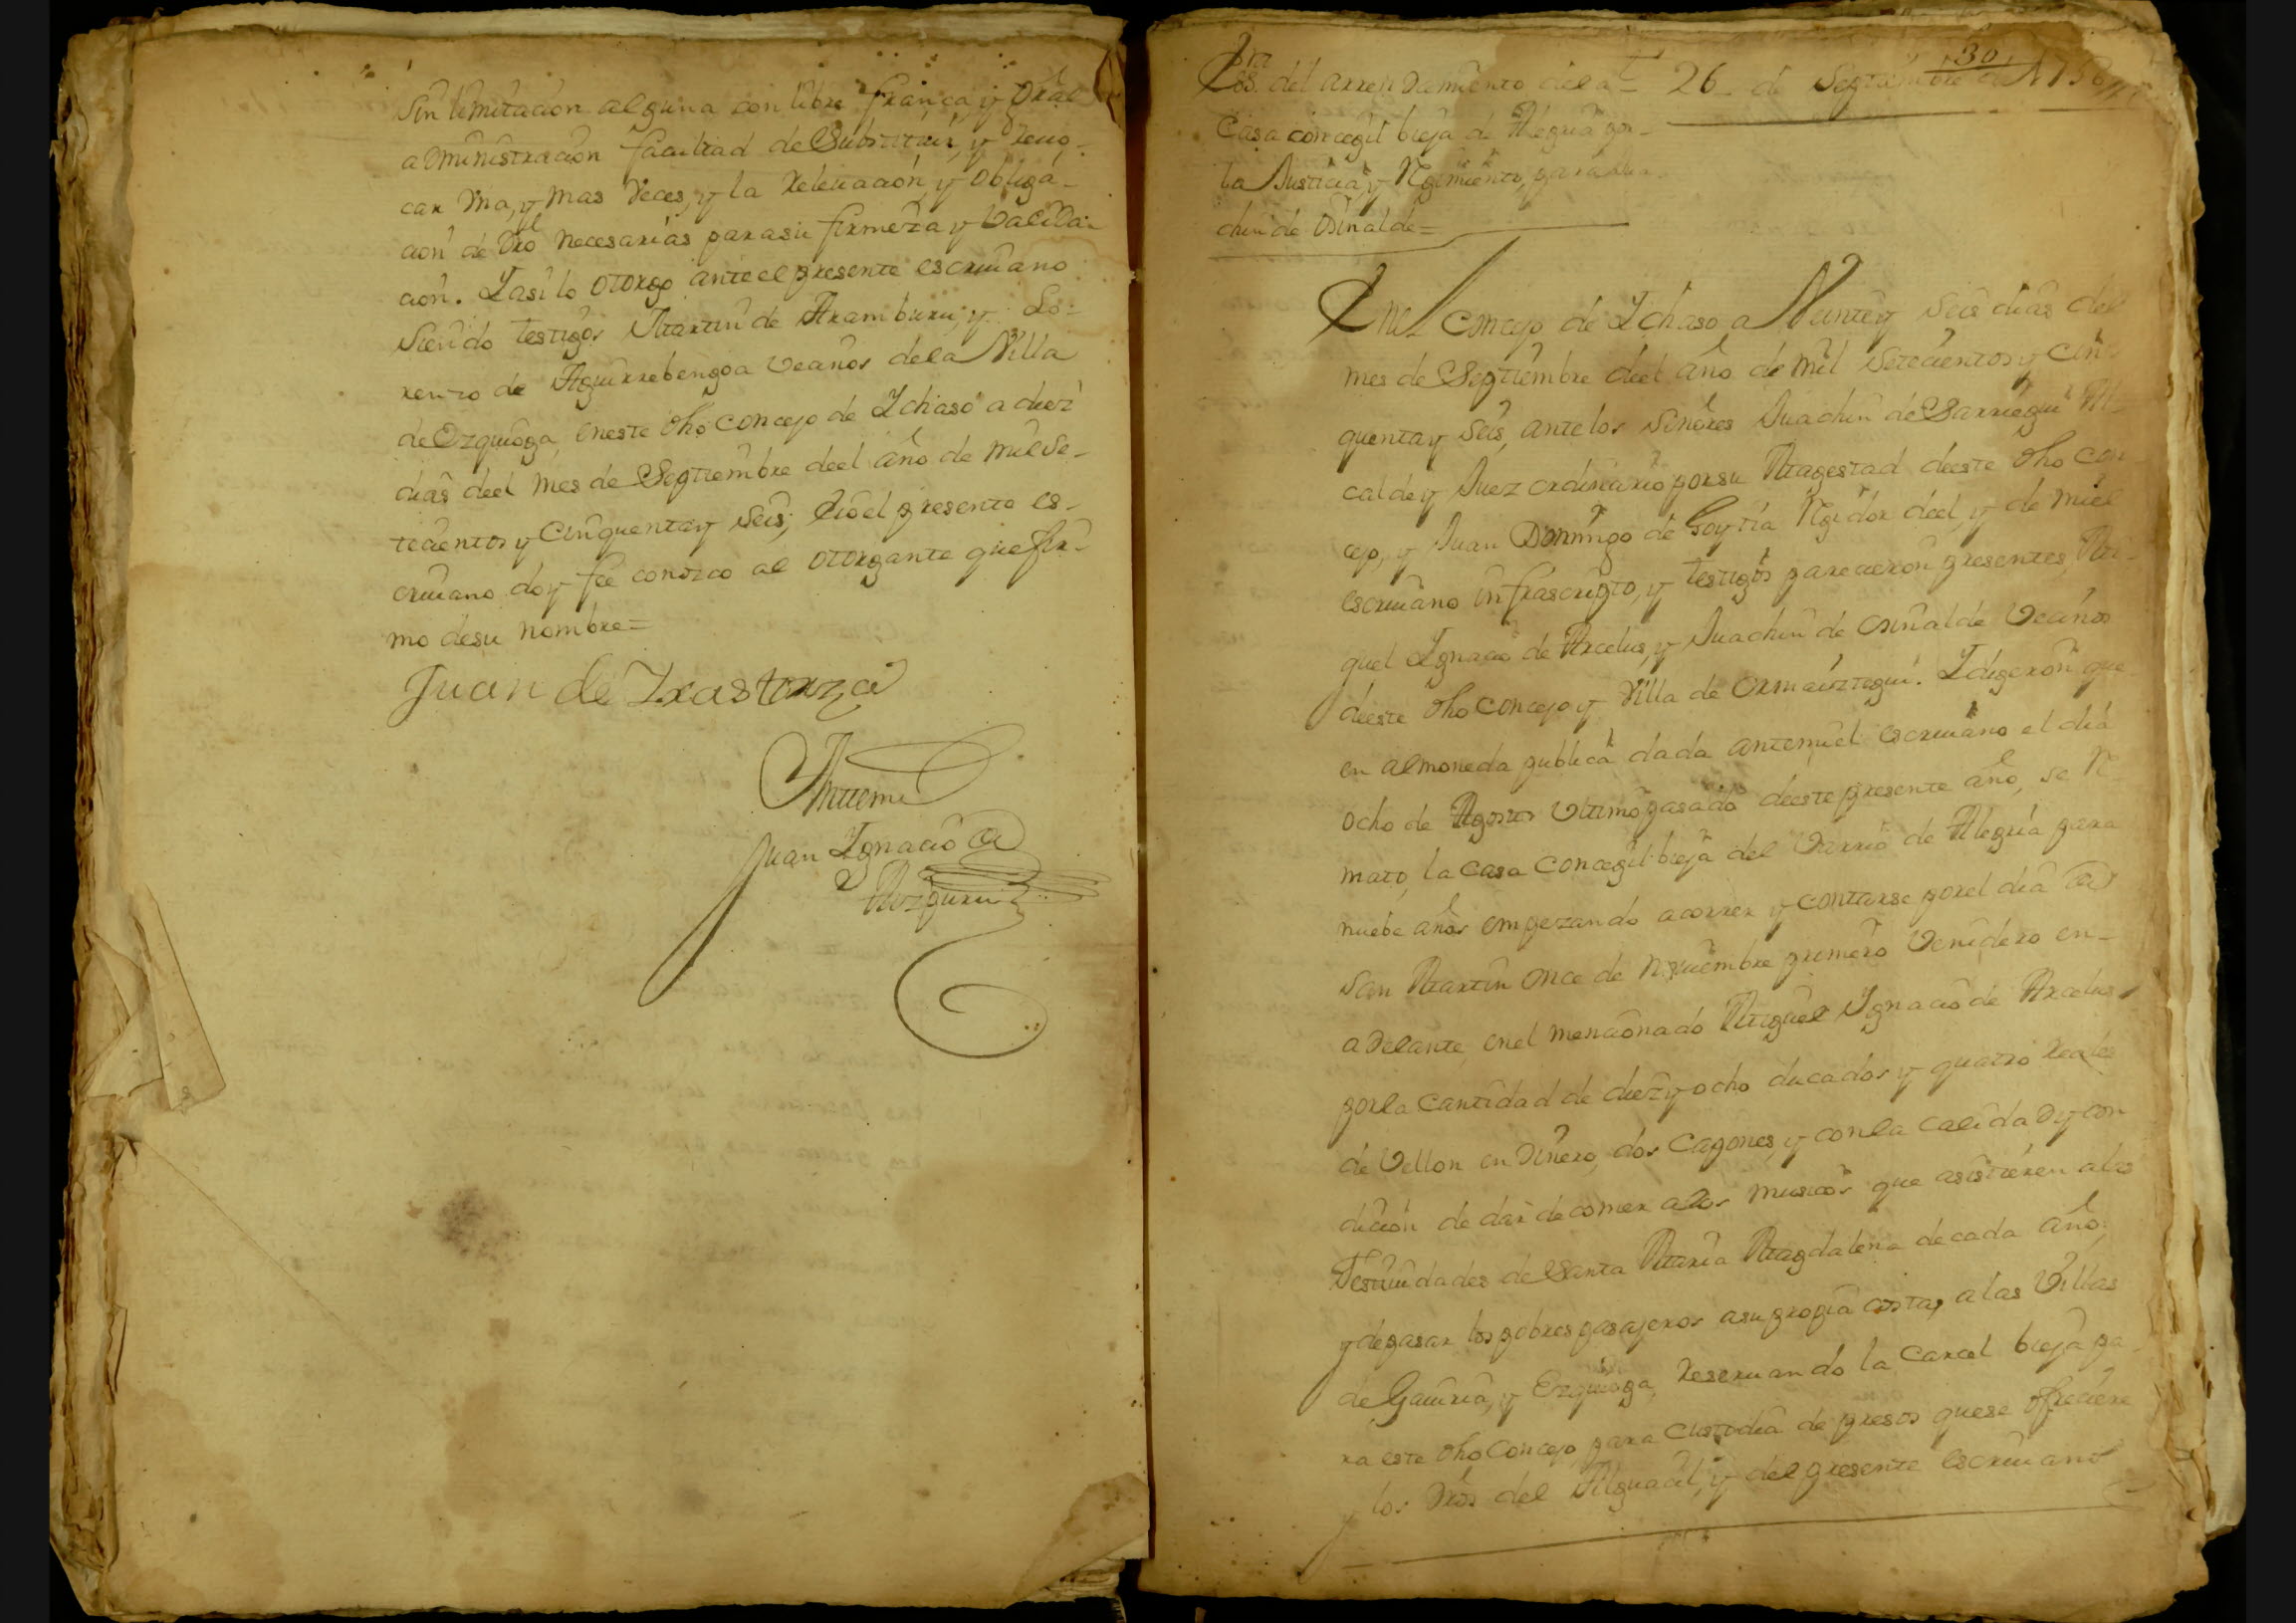 Sin limitacion alguna con libre franca, y Gral
administracion facultad de Substituir, y revo-
car Vna, y mas veces, y la relevacion, y obliga-
cion de Dro necesarias para su firmeza y valida-
cion. Y asi lo otorgo ante el presente escriuano
siendo testigos Martin de Aramburu, y Lo-
renzo de Aguirrebengoa vecinos de la Villa
de Ezquioga, en este dho concejo de Ichaso a diez
dias deel mes de Septiembre deel año de mil se-
tecientos y cinquenta y seis; e io el presente es-
criuano doy fee conozco al otorgante que fir-
mo de su nombre=
Juan de Irastorza
Antemi
Juan Ignacio de
Aozpuru
30
Ess.ra del arrendamiento de la = 26 de Septiembre de 1756
Casa concegil bieja de Alegria por
la Justicia, y Regimiento, para Jua-
chin de Osinalde=
En el concejo de Ichaso a Veinte y seis dias del
mes de Septiembre deel año de mil setecientos y cin-
quenta y seis, ante los Señores Juachin de Sarriegui Al-
calde y Juez ordinario por su Magestad deeste dho con-
cejo, y Juan Domingo de Goytia Regidor deel, y de mi el
escriuano infrascripto, y testigos parecieron presentes, Mi-
guel Ignacio de Arcelus, y Juachin de Osinalde Vecinos
deeste dho concejo y Villa de Ormaiztegui. Y digeron que
en almoneda publica dada ante mi el escriuano el dia
ocho de Agosto Vltimo pasado deeste presente año, se Re-
mato, la casa concegil bieja del Varrio de Alegria para
nuebe años empezando a correr y contarse por el dia de
San Martin once de Nouiembre primero Venidero en-
adelante, en el mencionado Miguel Ignacio de Arcelus
por la cantidad de diez y ocho ducados y quatro reales
de Vellon en dinero, dos capones, y con la calidad y con
dicion de dar de comer a los musicos que asistieren a las
Festiuidades de Santa Maria Magdalena de cada año,
y de pasar los pobres pasajeros a su propia costa, a las Villas
de Gauiria, y Ezquioga, reseruando la Carcel bieja pa-
ra este dho Concejo, para custodia de presos que se ofreciere
y los Dros del Alguacil, y del presente escriuano